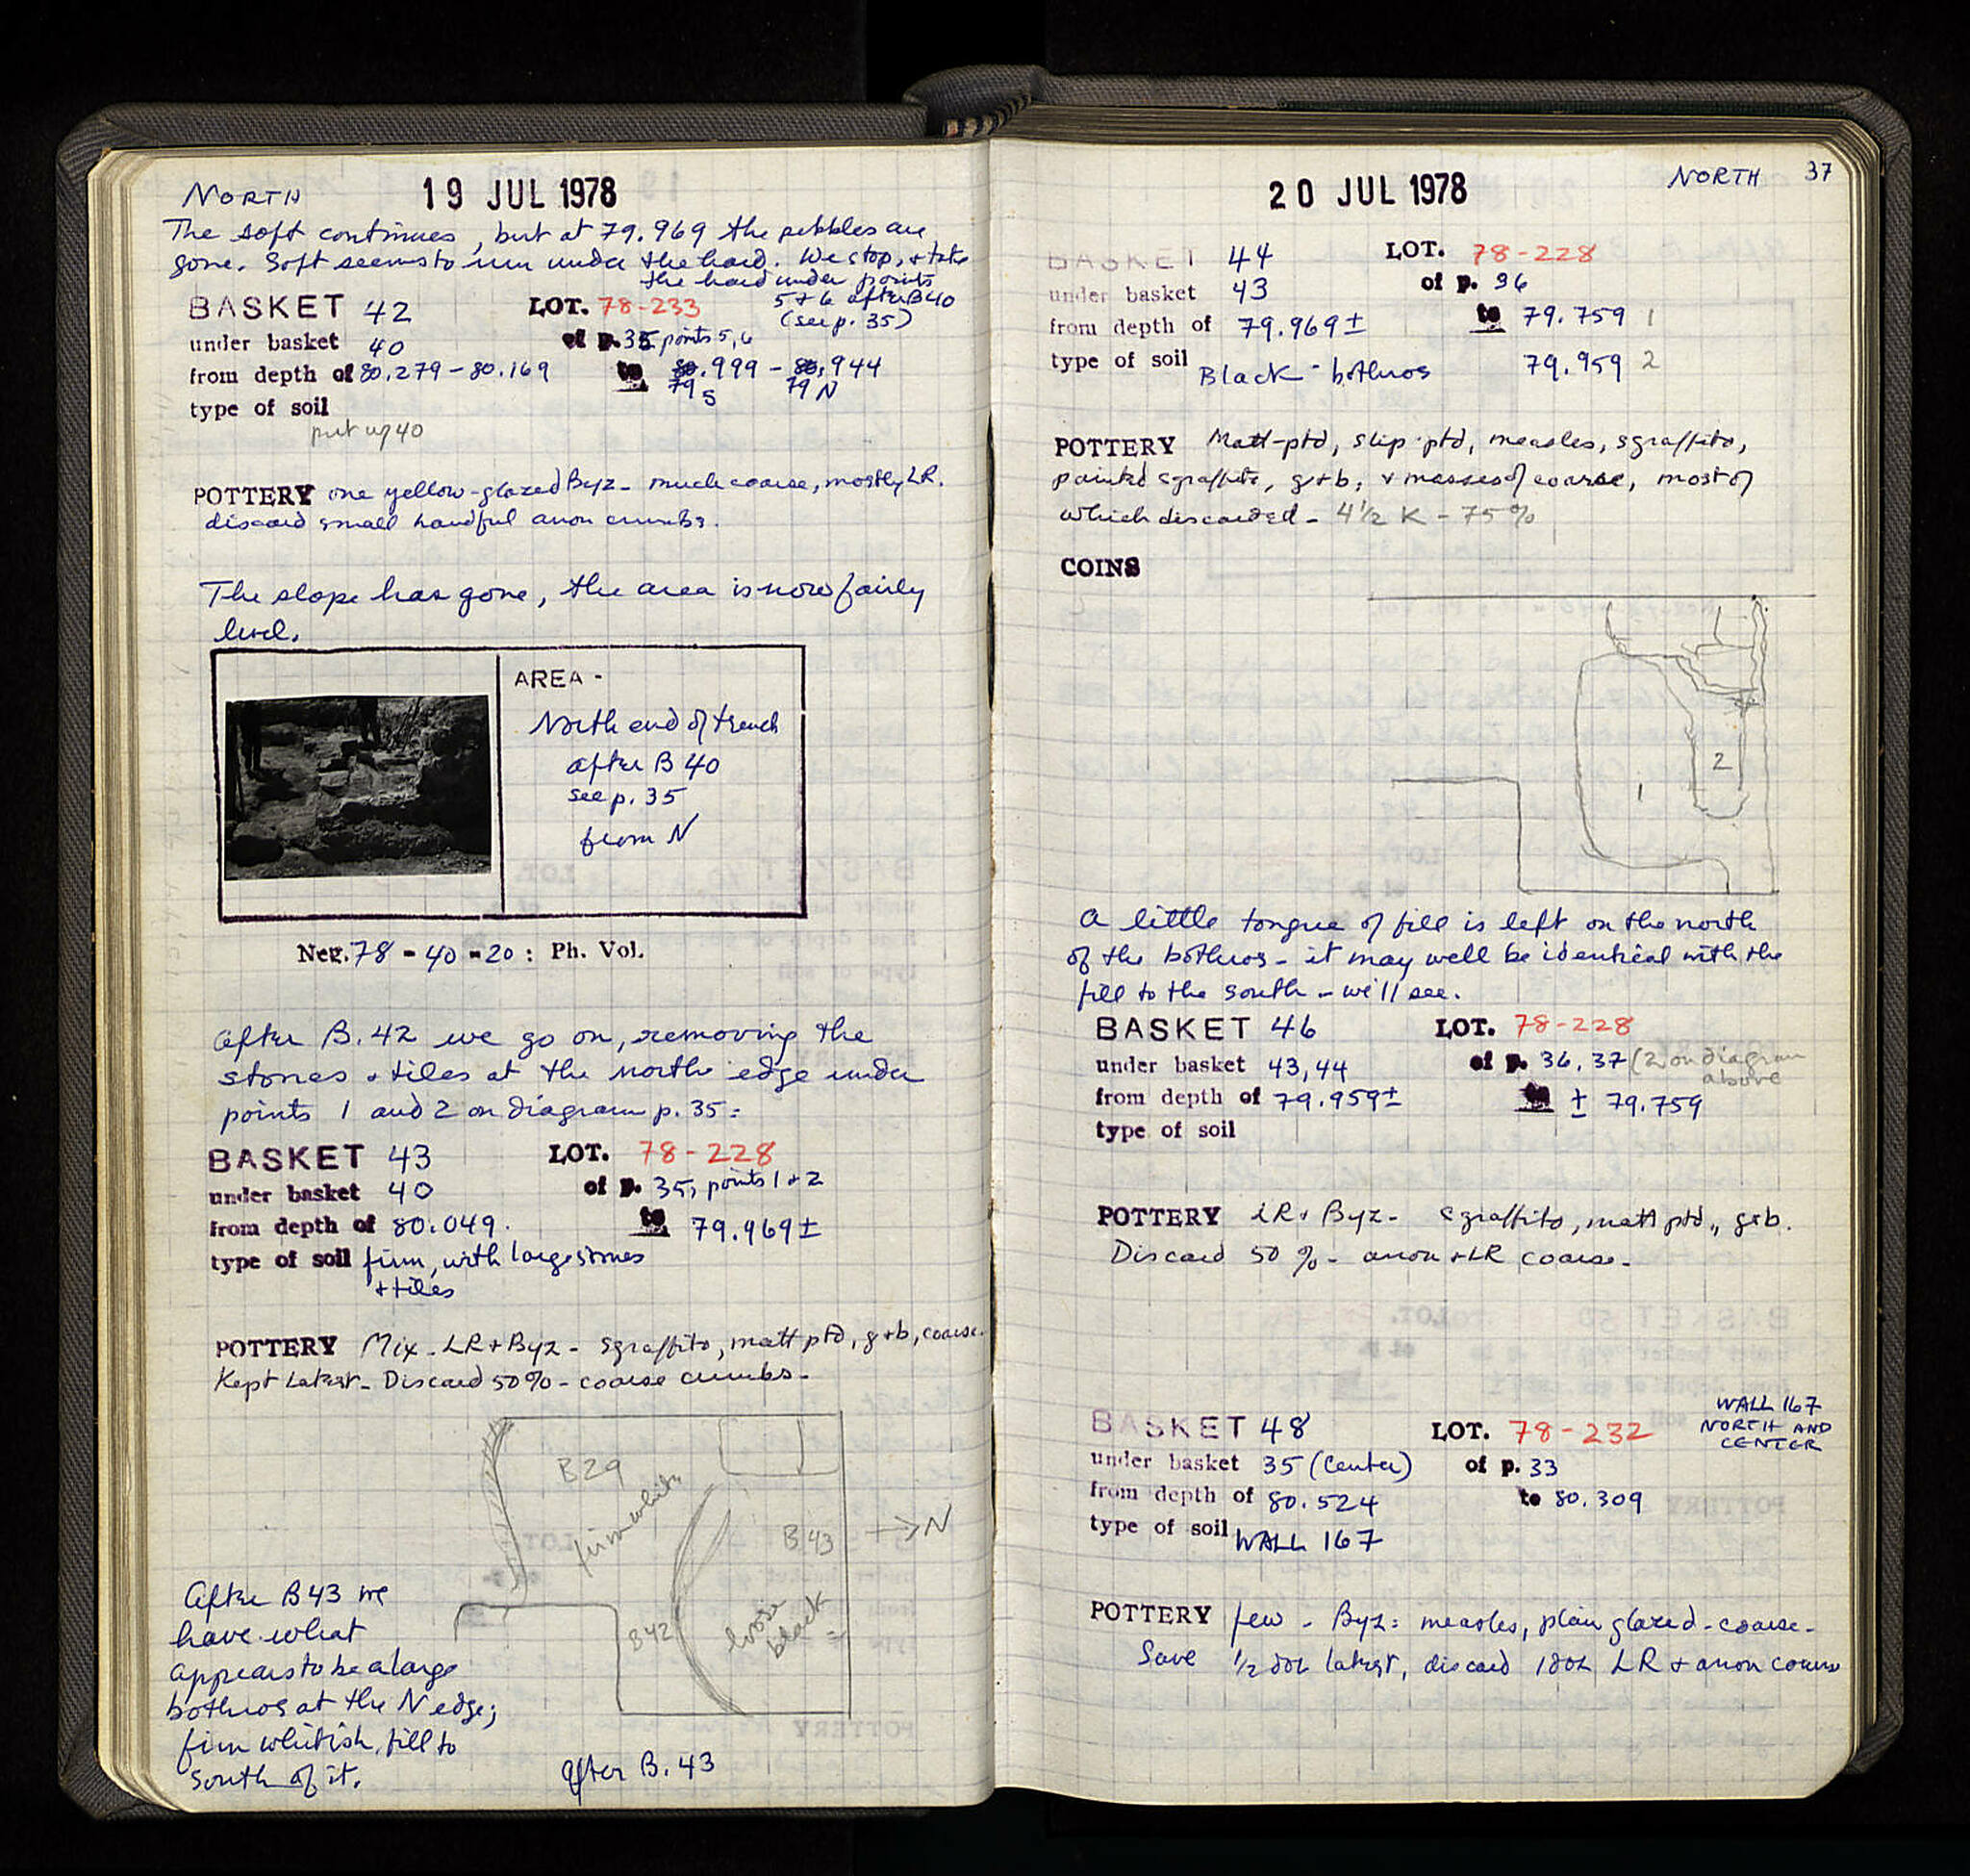 NORTH 19 JUL 1978
The soft continues, but at 79.969 the pebbles are
gone. Soft seems to run under the hard. We stop, + take
the hard under points
5 + 6 after B40
(see p. 35)
BASKET 42 LOT. 78-233
under basket 40 of p. 35 points 5, 6
from depth of 80.279 - 80.169 to 79.999 - 79.944
S N
type of soil
put w/ 40
POTTERY one yellow-glazed Byz - much coarse, mostly LR.
discard small handful anon crumbs.
The slope has gone, the area is now fairly
level.
AREA -
North end of trench
after B 40
see p. 35
from N
Neg. 78 - 40 - 20 : Ph. Vol.
After B. 42 we go on, removing the
stones + tiles at the north edge under
points 1 and 2 on diagram p. 35:
BASKET 43 LOT. 78-228
under basket 40 of p. 35, points 1 + 2
from depth of 80.049. to 79.969 ±
type of soil firm, with large stones
+ tiles
POTTERY Mix - LR + Byz - sgraffito, matt ptd, g+b, coarse.
Kept Latest - Discard 50% - coarse crumbs -
B29
firm white
B43
→ N
B42
loose
black
After B43 we
have what
appears to be a large
bothros at the N edge;
firm whitish fill to
south of it.
after B. 43
37
20 JUL 1978 NORTH
BASKET 44 LOT. 78-228
under basket 43 of p. 36
from depth of 79.969 ± to 79.759 1
type of soil Black - bothros 79.959 2
POTTERY Matt-ptd, slip-ptd, measles, sgraffito,
painted sgraffito, g+b, + masses of coarse, most of
which discarded - 4 1/2 K - 75%
COINS
2
1
A little tongue of fill is left on the north
of the bothros - it may well be identical with the
fill to the south - we'll see.
BASKET 46 LOT. 78-228
under basket 43, 44 of p. 36, 37 (2 on diagram
above
from depth of 79.959 ± to ± 79.759
type of soil
POTTERY LR + Byz - sgraffito, matt ptd., g+b.
Discard 50% - anon + LR coarse -
WALL 167
NORTH AND
CENTER
BASKET 48 LOT. 78-232
under basket 35 (Center) of p. 33
from depth of 80.524 to 80.309
type of soil WALL 167
POTTERY few - Byz: measles, plain glazed - coarse -
Save 1/2 latest, discard LR + anon coarse